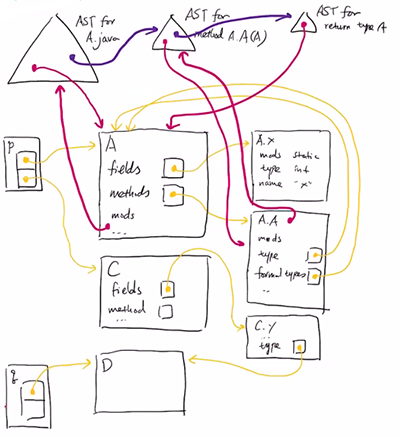 AST for
A.java
AST for
method A.A(A)
AST for
return type A
P
A
fields
methods
mods
...
A.x
mods static
type int
name "x"
A.A
mods
type
formal types
..
C
fields
method
...
C.Y
...
type
q
D